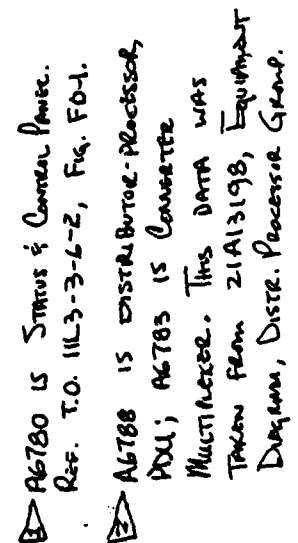 1 A6780 IS STATUS & CONTROL PANEL.
REF. T.O. 11L3-3-6-2, FIG. FO-1.
2 A6788 IS DISTRIBUTOR-PROCESSOR,
PDU; A6783 IS CONVERTER
MULTIPLEXER. THIS DATA WAS
TAKEN FROM 21A13198, EQUIPMENT
DIAGRAM, DISTR. PROCESSOR GROUP.